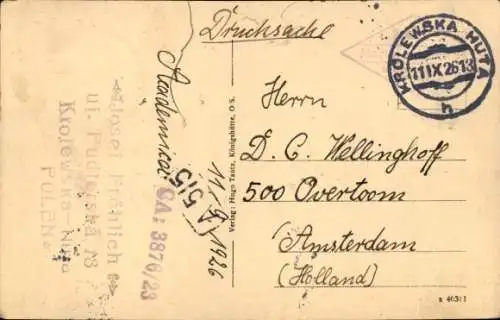 Drucksache
KRÓLEWSKA HUTA
11 IX 26 13
h
Herrn
D. C. Wellinghoff
500 Overtoom
Amsterdam
(Holland)
Verlag: Hugo Tautz, Königshütte, O S.
Josef Fröhlich
ul. Pudlerska 13
Krolewska-Huta
POLEN.
A 5,5
CA: 3876/23
11/9 1926